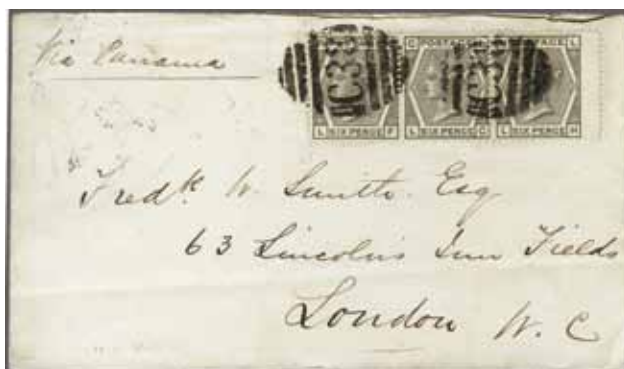 Via Panama
C38 C38
POSTAGE L
L SIX PENCE F L SIX PENCE G L SIX PENCE H
Fredk. W. Smith. Esq
63 Lincoln's Inn Fields
London W. C